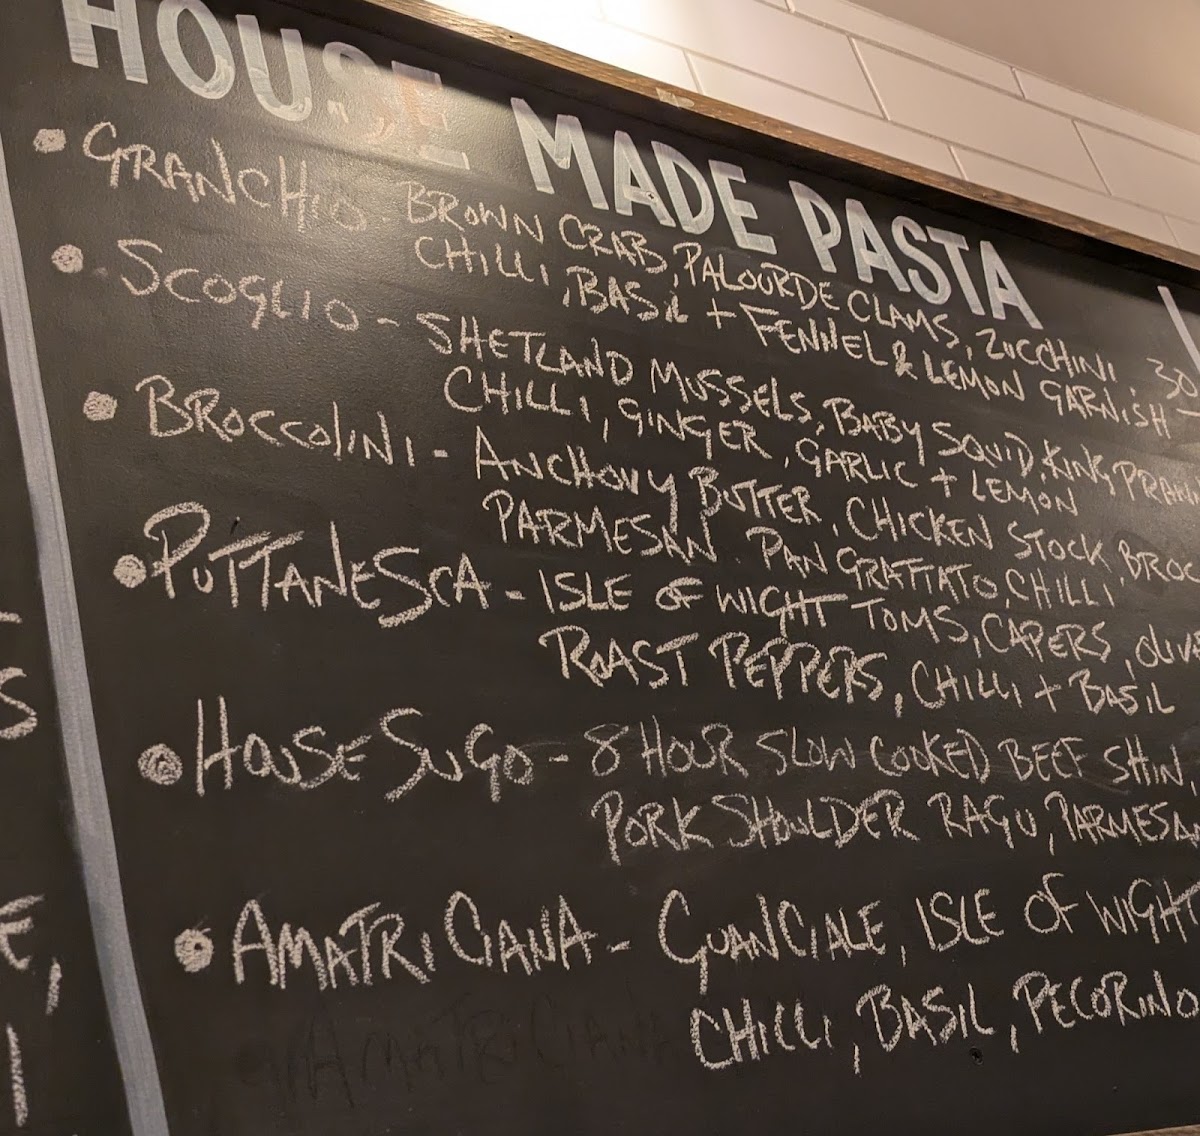 HOUSE MADE PASTA
• GRANCHIO - BROWN CRAB, PALOURDE CLAMS, ZUCCHINI, 30
CHILLI, BASIL + FENNEL & LEMON GARNISH -
• SCOGLIO - SHETLAND MUSSELS, BABY SQUID, KING PRAW
CHILLI, GINGER, GARLIC + LEMON
• BROCCOLINI - ANCHOVY BUTTER, CHICKEN STOCK, BROC
PARMESAN PAN GRATTATO, CHILLI
• PUTTANESCA - ISLE OF WIGHT TOMS, CAPERS, OLIV
ROAST PEPPERS, CHILLI + BASIL
• HOUSE SUGO - 8 HOUR SLOW COOKED BEEF SHIN,
PORK SHOULDER RAGU, PARMESAN
• AMATRICIANA - GUANCIALE, ISLE OF WIGHT
CHILLI, BASIL, PECORINO